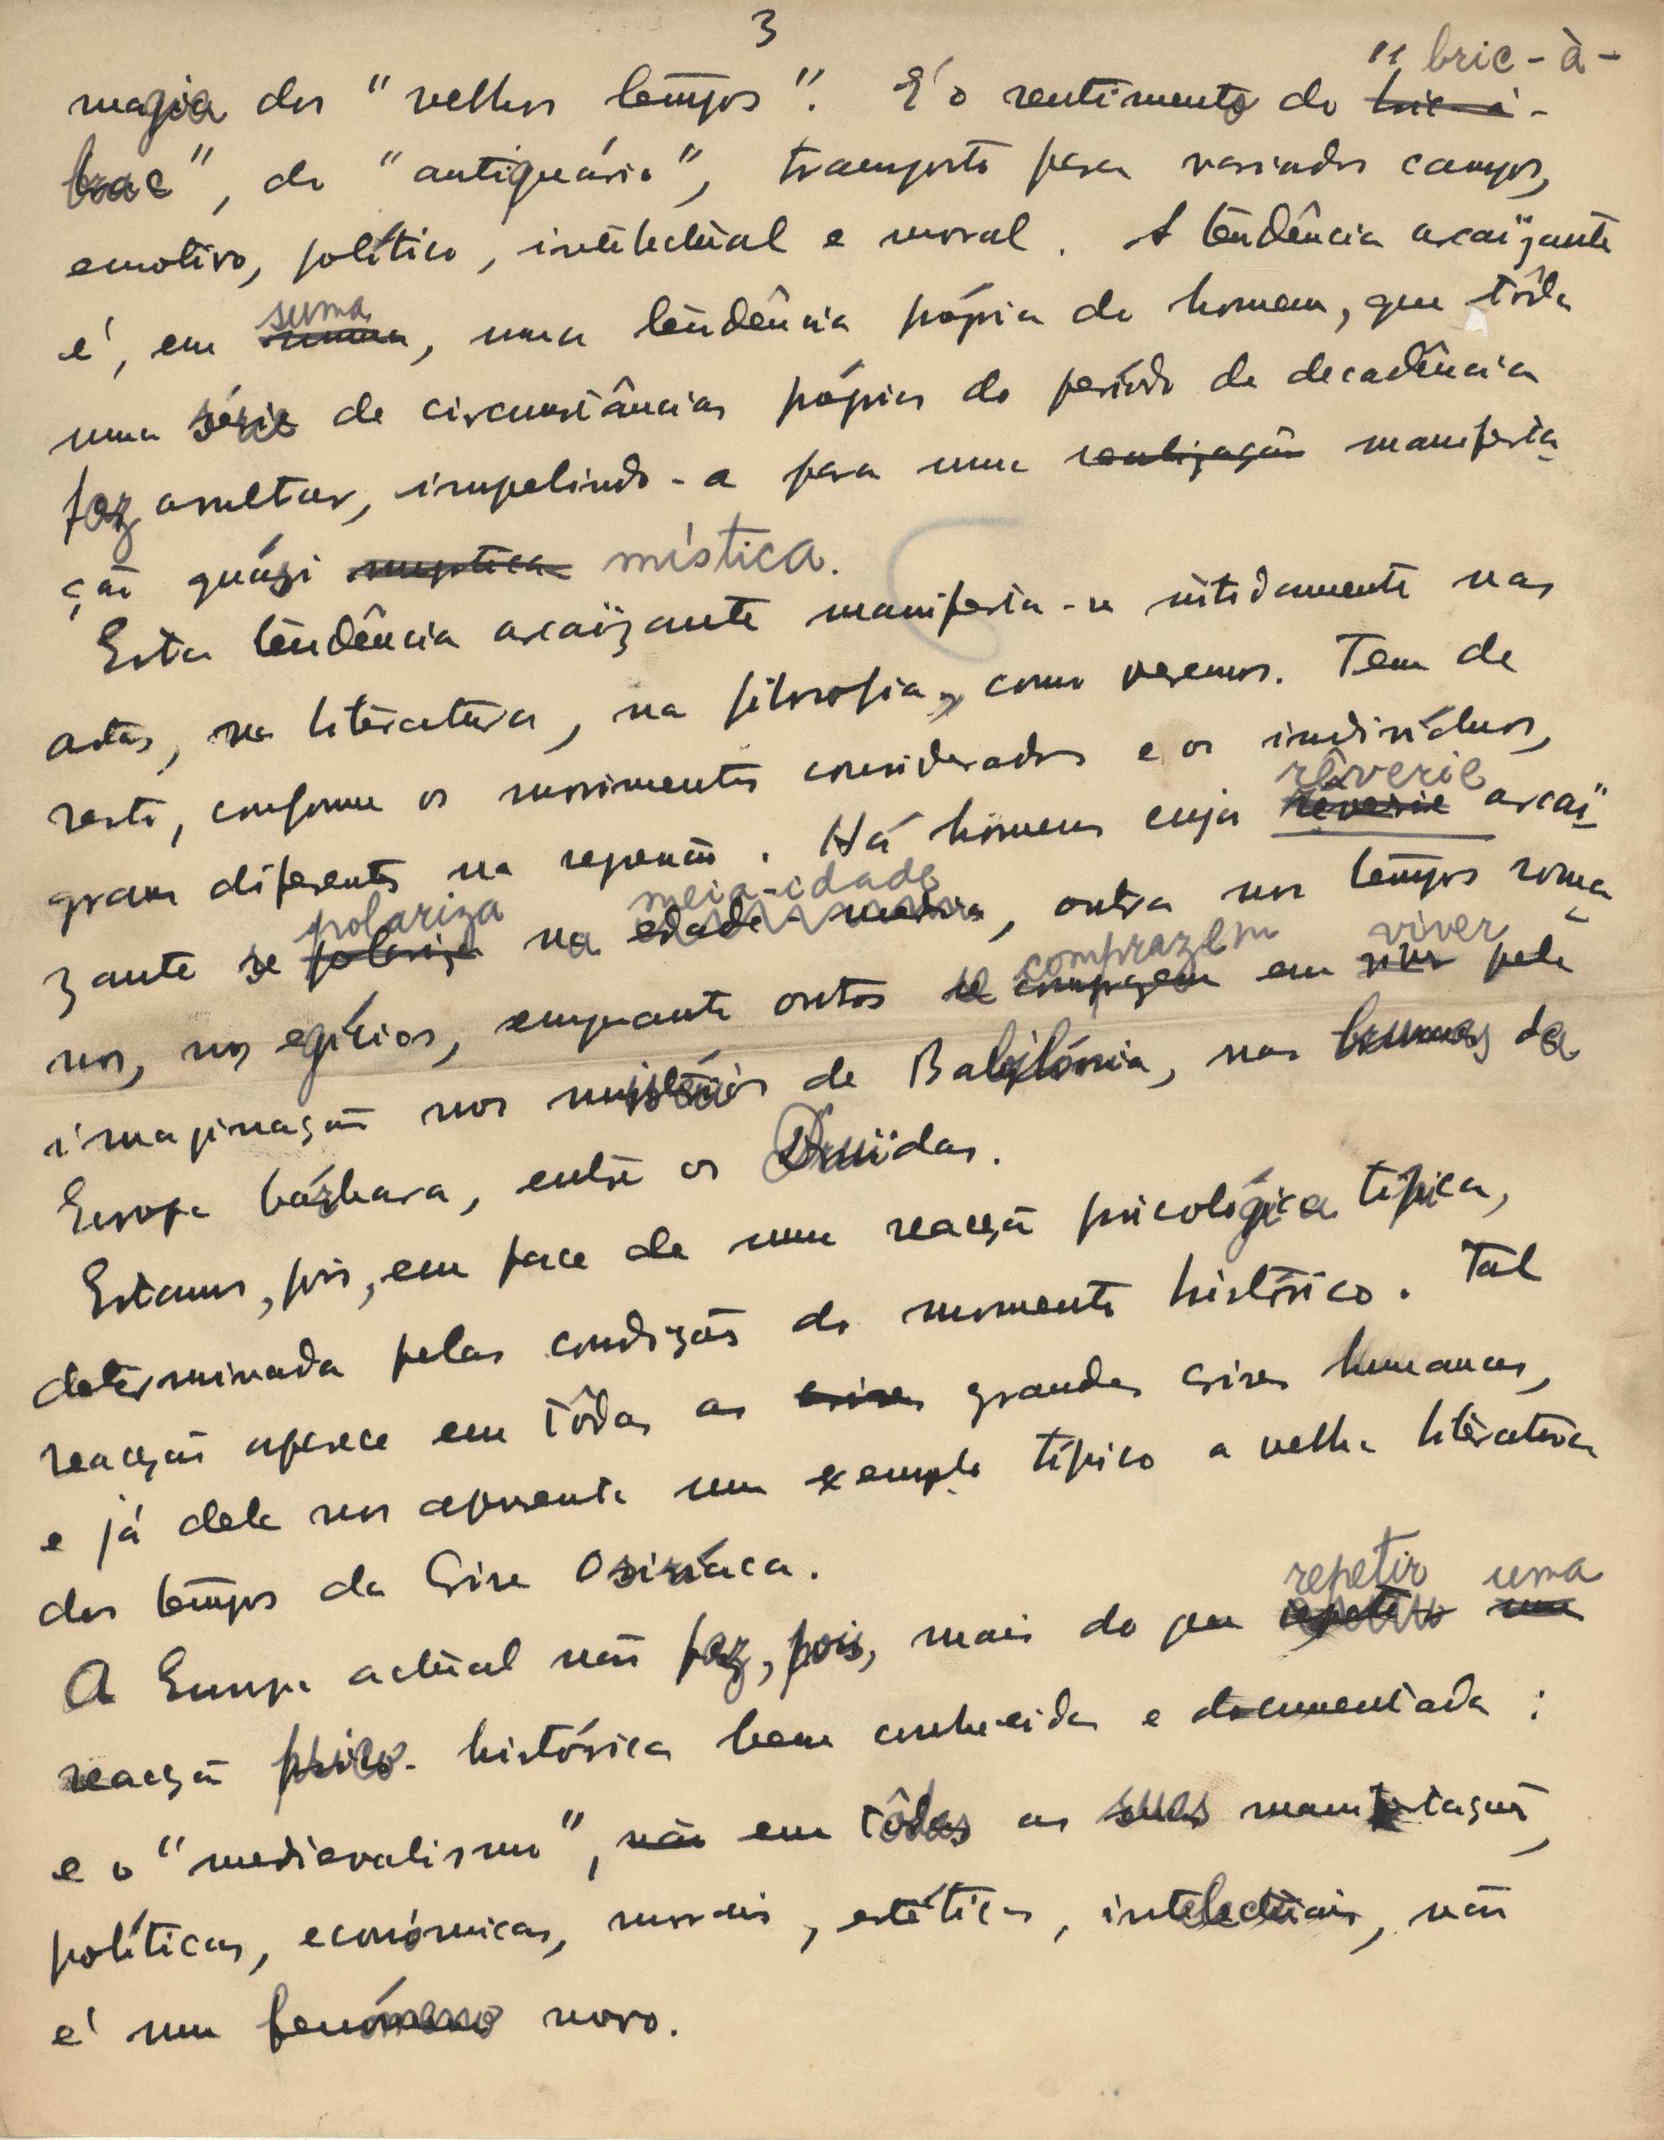 3
magia dos "velhos tempos". É o sentimento do "bric-à-
brac", do "antiquário", transposto para variados campos,
emotivo, político, intelectual e moral. A tendência arcaïzante
é, em suma, uma tendência própria do homem, que tôda
uma série de circunstâncias próprias do período de decadência
faz avultar, impelindo-a para uma realização manifesta-
ção quási mística.
Esta tendência arcaïzante manifesta-se nitidamente nas
artes, na literatura, na filosofia, como veremos. Tem de
resto, conforme os movimentos considerados e os indivíduos,
graus diferentes na regressão. Há homens cuja rêverie arcaï-
zante se polariza na meia-idade, outra nos tempos roma-
nos, nos egípcios, enquanto outros se comprazem em viver pela
imaginação nos mistérios de Babilónia, nas brumas da
Europa bárbara, entre os Druïdas.
Estamos, pois, em face de uma reacção psicológica típica,
determinada pelas condições do momento histórico. Tal
reacção aparece em tôdas as crises grandes crises humanas,
e já dela nos apresenta um exemplo típico a velha literatura
dos tempos da Crise Osiríaca.
A Europa actual não faz, pois, mais do que repetir uma
reacção psico-histórica bem conhecida e documentada:
e o "medievalismo", não em tôdas as suas manifestações,
políticas, económicas, morais, estéticas, intelectuais, não
é um fenómeno novo.